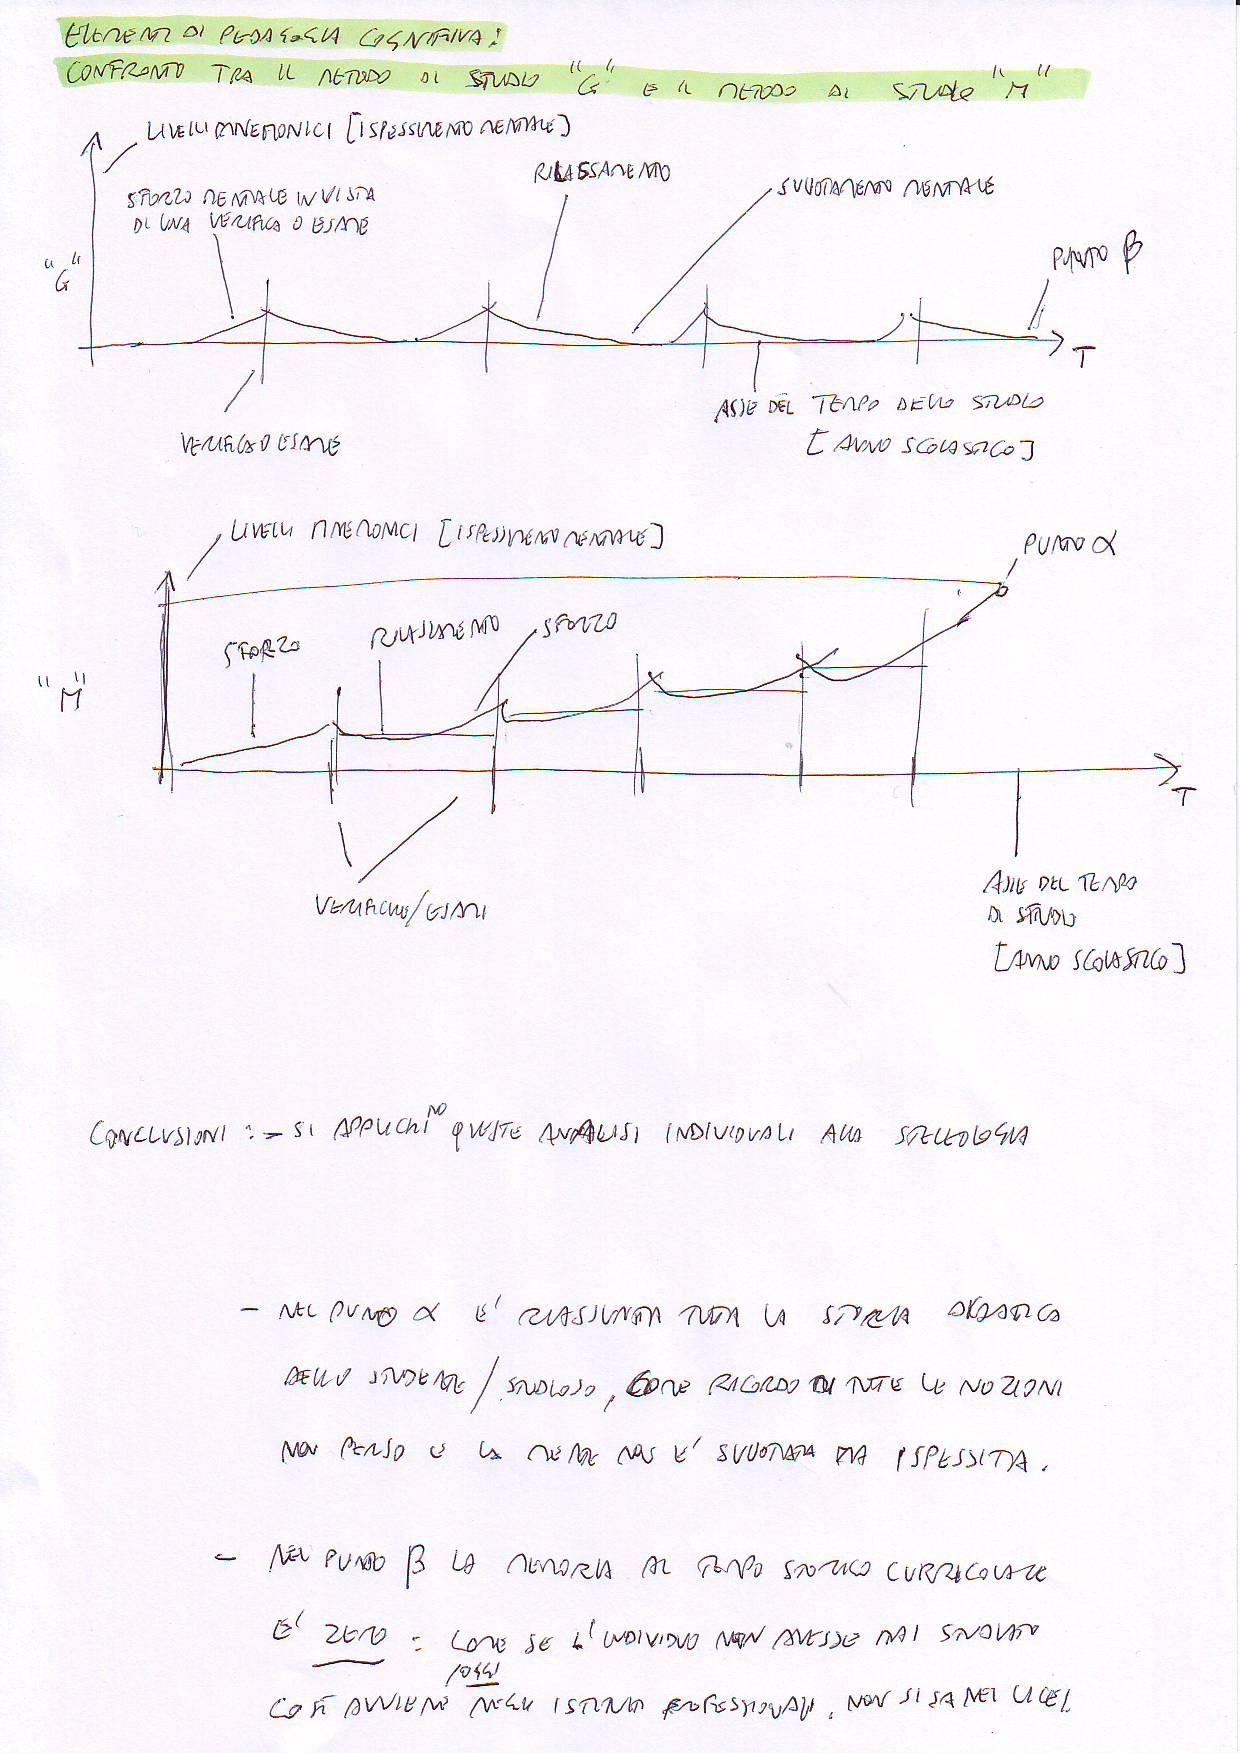 ELEMENTI DI PEDAGOGIA COGNITIVA:
CONFRONTO TRA IL METODO DI STUDIO "G" E IL METODO DI STUDIO "M"
LIVELLI MNEMONICI [ISPESSIMENTO MENTALE]
RILASSAMENTO
SVUOTAMENTO MENTALE
SFORZO MENTALE IN VISTA
DI UNA VERIFICA O ESAME
PUNTO β
"G"
T
ASSE DEL TEMPO DELLO STUDIO
[ANNO SCOLASTICO]
VERIFICA O ESAME
LIVELLI MNEMONICI [ISPESSIMENTO MENTALE]
PUNTO α
SFORZO
RILASSAMENTO
SFORZO
"M"
T
VERIFICHE/ESAMI
ASSE DEL TEMPO
DI STUDIO
[ANNO SCOLASTICO]
CONCLUSIONI : - SI APPLICHINO QUESTE ANALISI INDIVIDUALI ALLA STELLOLOGIA
- NEL PUNTO α E' RIASSUNTA TUTTA LA STORIA DIDATTICA
DELLO STUDENTE / STUDIOSO, COME RICORDO DI TUTTE LE NOZIONI
NON PERSO E LA MENTE NON E' SVUOTATA MA ISPESSITA.
- NEL PUNTO β LA MEMORIA AL TEMPO STORICO CURRICOLARE
E' ZERO : COME SE L'INDIVIDUO NON AVESSE MAI STUDIATO
COSÌ AVVIENE OGGI NEGLI ISTITUTI PROFESSIONALI, NON SI SA NEI LICEI.